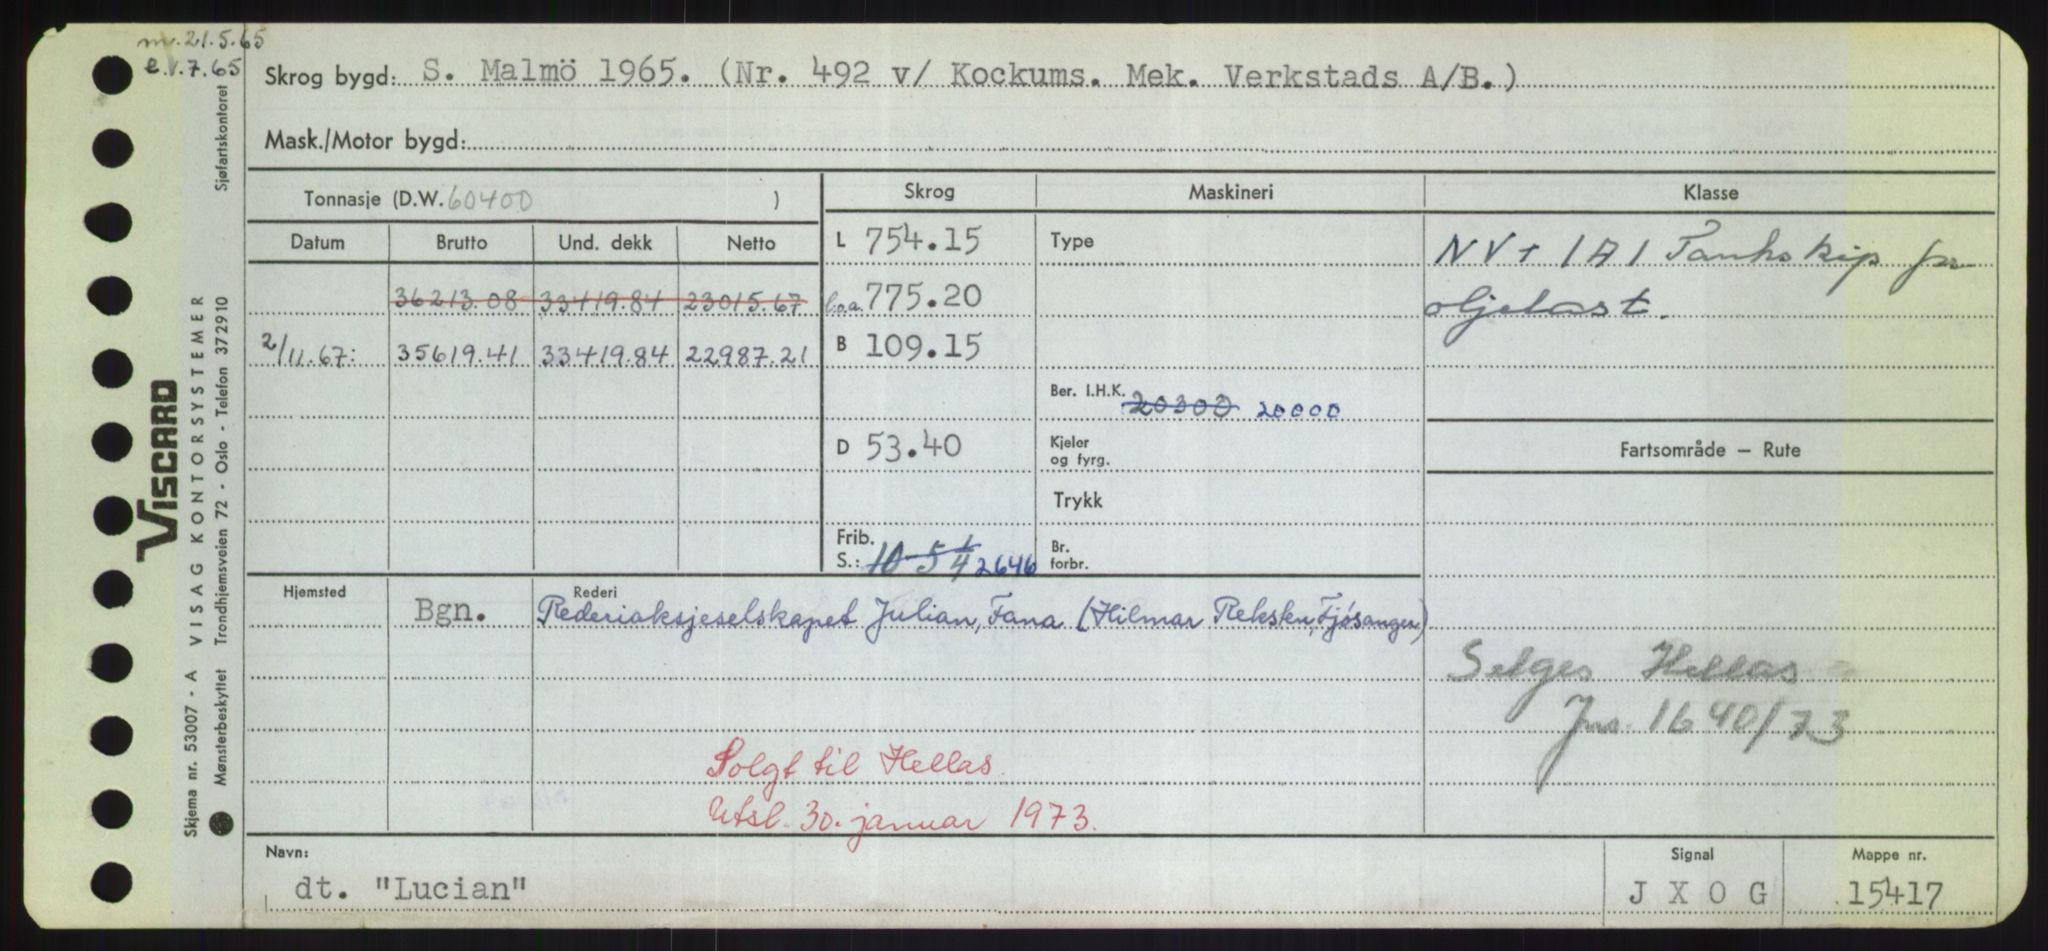 m. 21.5.65
e. 1.7.65
Skrog bygd: S. Malmö 1965. (Nr. 492 v/ Kockums. Mek. Verkstads A/B.)
Mask./Motor bygd:
Tonnasje (D.W. 60400 )
Skrog
Maskineri
Klasse
Datum Brutto Und. dekk Netto
36213.08 33419.84 23015.67
2/11.67: 35619.41 33419.84 22987.21
L 754.15
l.o.a. 775.20
B 109.15
D 53.40
Frib.
S.: 10-5 1/4 2646
Type
Ber. I.H.K. 20300 20000
Kjeler
og fyrg.
Trykk
Br.
forbr.
NV+ 1A1 Tankskip for
oljelast.
Fartsområde – Rute
Selges Hellas
Jnr. 1640/73
Hjemsted
Rederi
Bgn. Rederiaksjeselskapet Julian, Fana (Hilmar Reksten, Fjøsanger)
Solgt til Hellas
Utsl. 30. januar 1973.
Navn:
dt. "Lucian"
Signal
J X O G
Mappe nr.
15417
VISCARD
Skjema nr. 53007 - A VISAG KONTORSYSTEMER
Mønsterbeskyttet Trondhjemsveien 72 - Oslo - Telefon 372910 Sjøfartskontoret